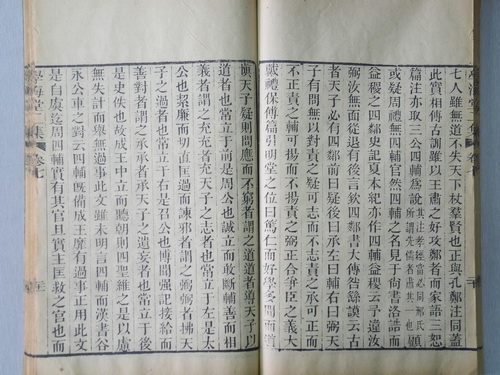 七人雖無道不失天下杖羣賢也正與孔鄭注同蓋
此實相傳古訓雖以王肅之好攻鄭者而家語三恕
篇注亦以四鄰四輔為說其注孝經當必同鄭氏所謂先儒者肅其一也顧
或疑周禮無四輔官然四輔之名見于尚書洛誥而
益稷之四鄰史記夏本紀亦作四輔益稷云予違汝
弼汝無面從退有後言欽四鄰書大傳咎繇謨云古
者天子必有四鄰前曰疑後曰承左曰輔右曰弼天
子有問無以對責之疑可志而不志責之承可正而
不正責之輔可揚而不揚責之弼正合爭臣之義大
戴禮保傅篇引明堂之位曰篤仁而好學多聞而道
慎天子疑則問應而不窮者謂之道道者導天子以
道者也常立于前是周公也誠立而敢斷輔善而相
義者謂之充充者充天子之志者也常立于左是太
公也絜廉而切直匡過而諫邪者謂之弼弼者拂天
子之過者也常立于右是召公也博聞强記接給而
善對者謂之承承者承天子之遺妄者也常立于後
是史佚也故成王中立而聽朝則四聖維之是以慮
無失計而舉無過事此文雖未明言四輔而漢書谷
永公車之對云四輔既備成王靡有過事正用此文
是自虞迄周四輔實有其官且實主匡救之官也而
學海堂二集 卷七